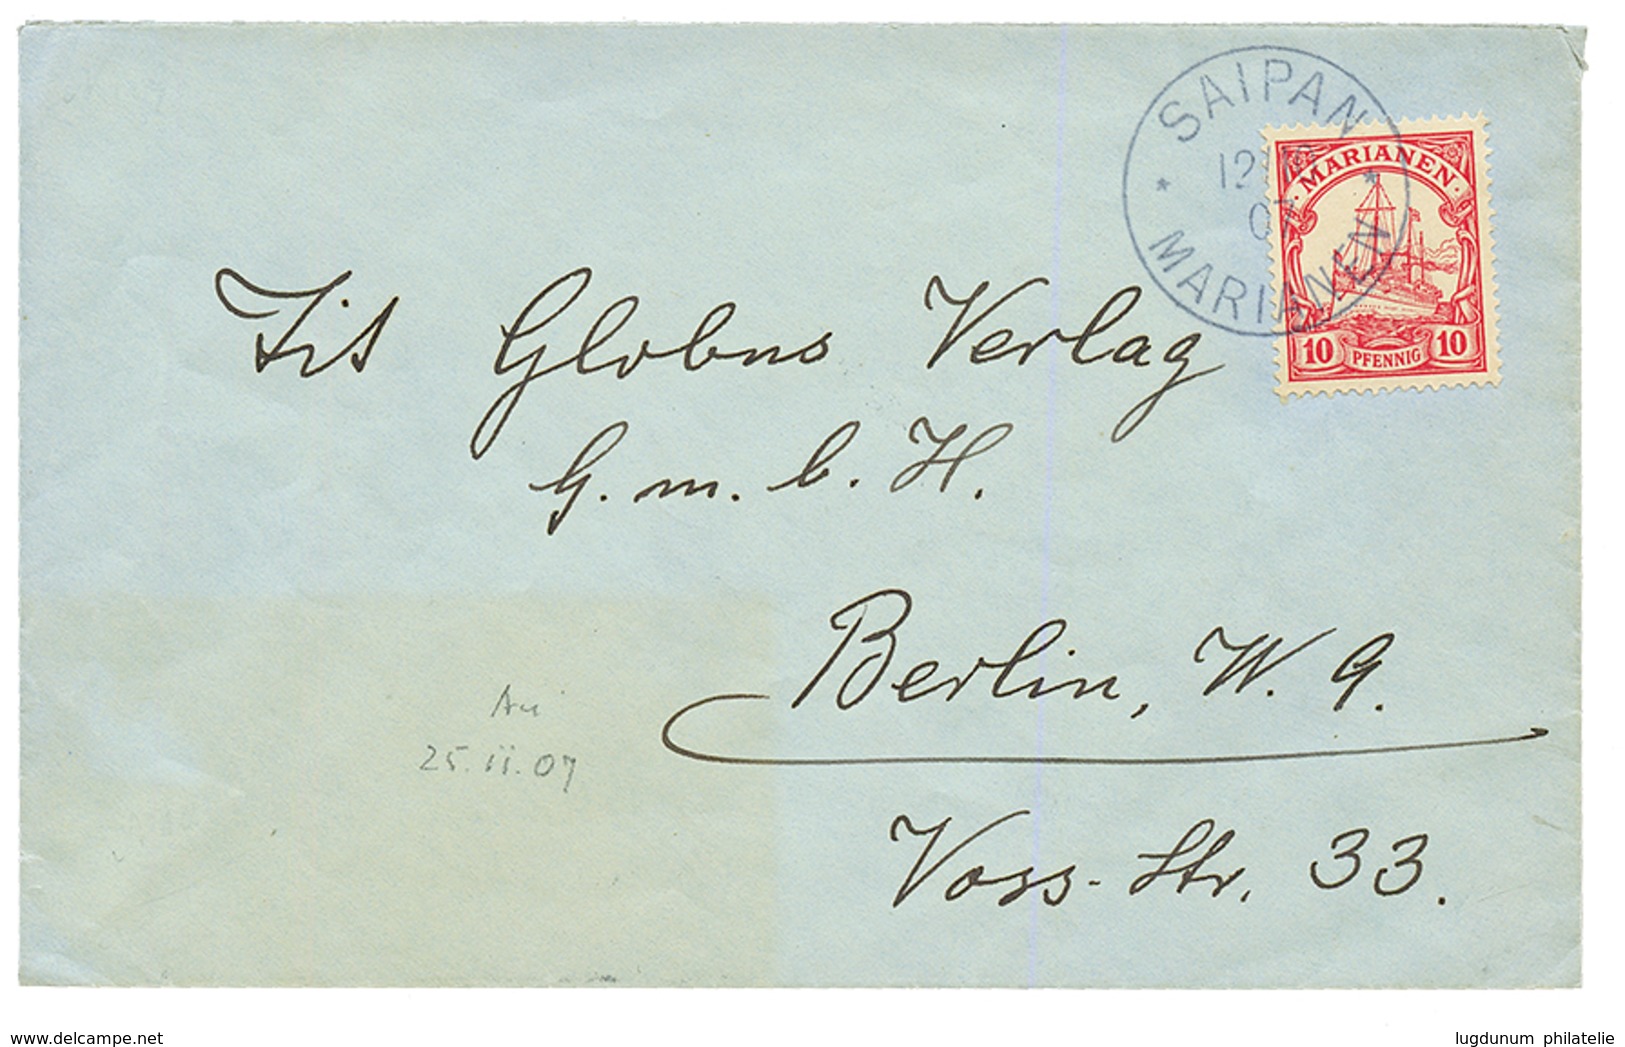 SAIPAN
12
07
MARIANEN
MARIANEN
10 PFENNIG 10
Globus Verlag
G. m. b. H.
Berlin, W. 9.
25. 11. 07
Voss-Str. 33.
www.delcampe.net
lugdunum philatelie